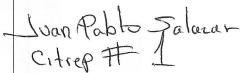 Juan Pablo Salazar
Citrep # 1